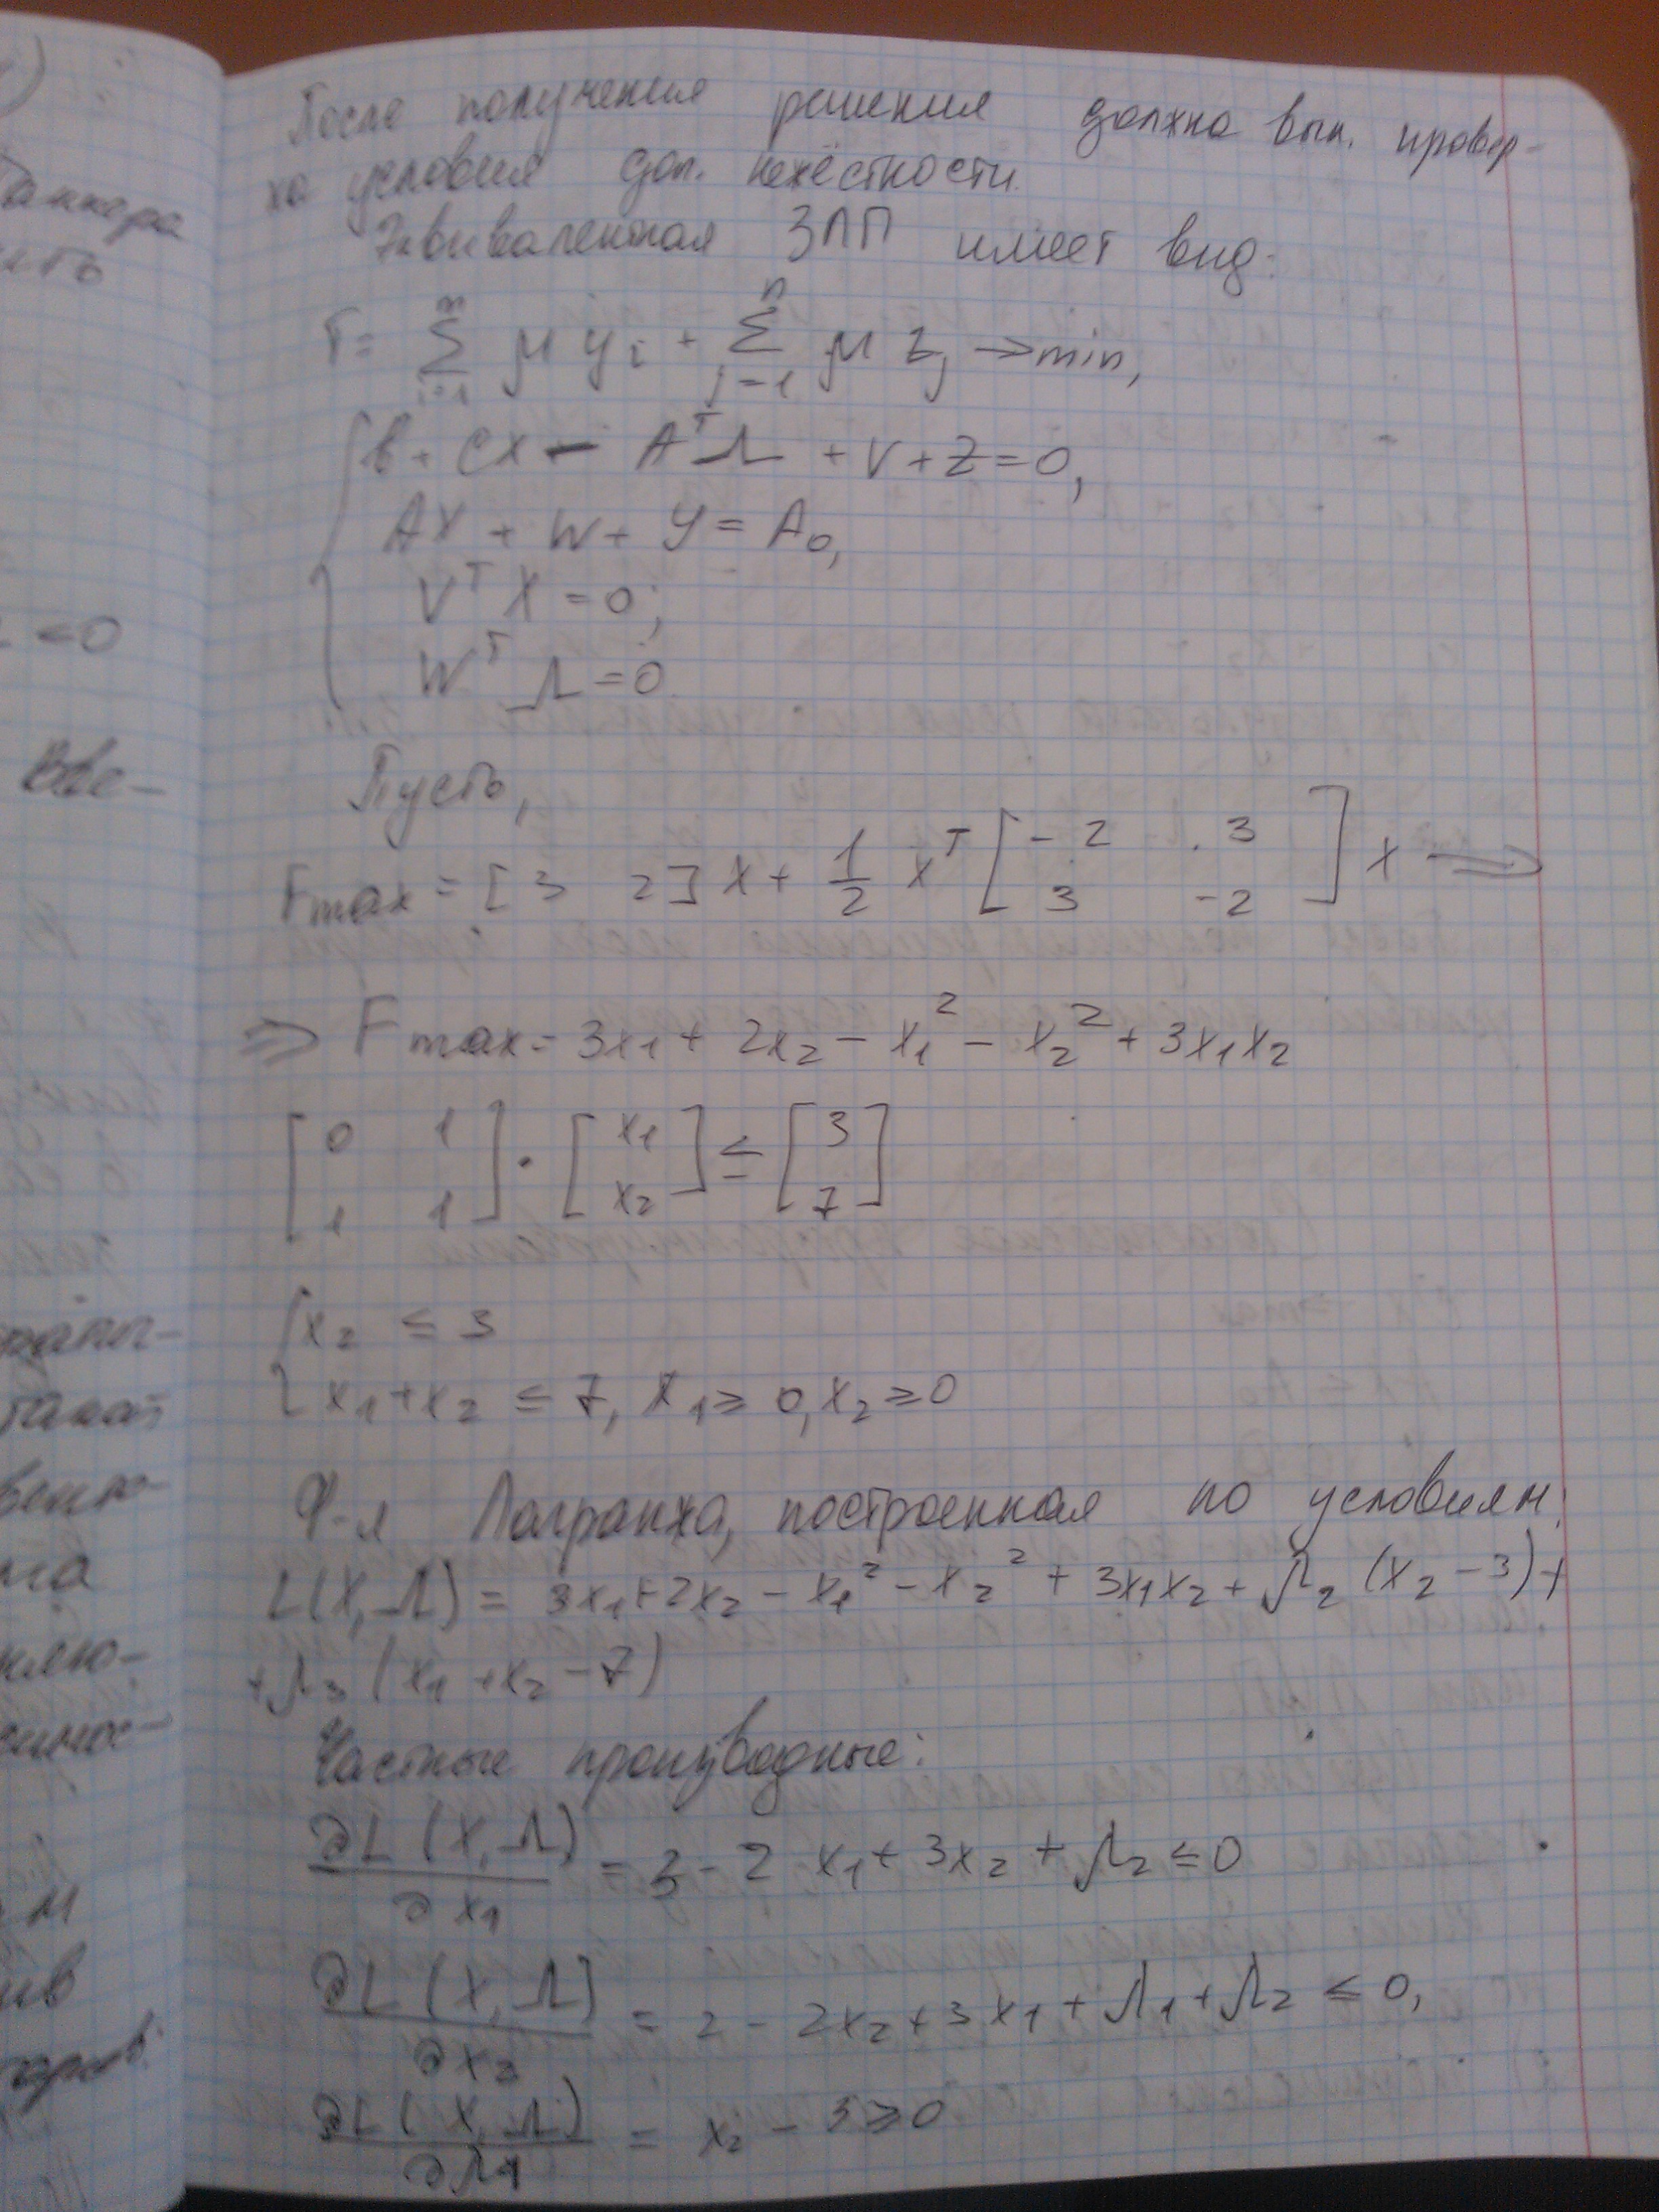 После получения решения должна вып. провер-
ка условия доп. нежёсткости.
Эквивалентная ЗЛП имеет вид:
T = ∑_{i=1}^{m} μ y_i + ∑_{j=1}^{n} μ z_j → min,
{ B + CX − A^T Λ + V + Z = 0,
AX + W + Y = A_0,
V^T X = 0;
W^T Λ = 0
Пусть,
F max = [3 2] X + 1/2 X^T [-2 3; 3 -2] X ⟹
⟹ F max = 3x_1 + 2x_2 − x_1^2 − x_2^2 + 3x_1x_2
[0 1; 1 1] · [x_1; x_2] ≤ [3; 7]
{ x_2 ≤ 3
x_1 + x_2 ≤ 7, x_1 ≥ 0, x_2 ≥ 0
Ф-я Лагранжа, построенная по условиям:
L(X, Λ) = 3x_1 + 2x_2 − x_1^2 − x_2^2 + 3x_1x_2 + Λ_2 (x_2 − 3) +
+ Λ_3 (x_1 + x_2 − 7)
Частные производные:
∂L(X, Λ)/∂x_1 = 3 − 2x_1 + 3x_2 + Λ_2 ≤ 0
∂L(X, Λ)/∂x_2 = 2 − 2x_2 + 3x_1 + Λ_1 + Λ_2 ≤ 0,
∂L(X, Λ)/∂Λ_1 = x_2 − 3 ≥ 0